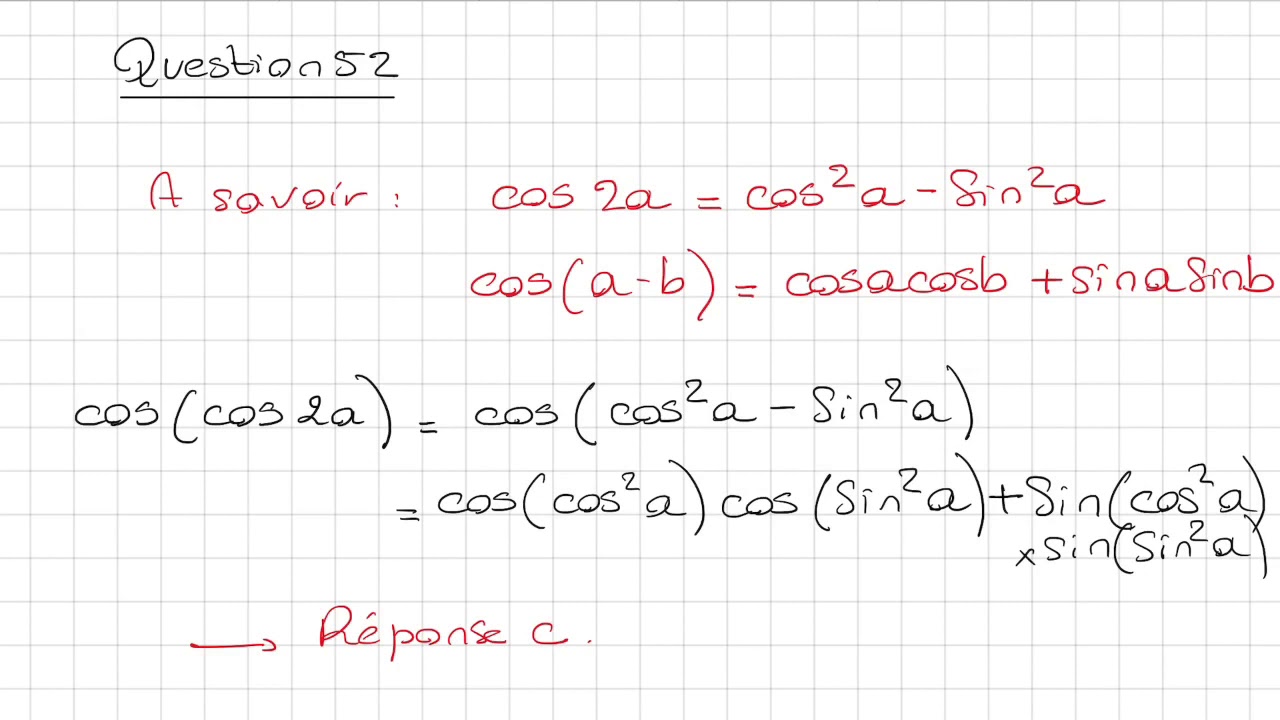 Question 52
A savoir : cos 2a = cos²a - Sin²a
cos(a-b) = cosacosb + sinaSinb
cos(cos 2a) = cos(cos²a - Sin²a)
= cos(cos²a) cos(Sin²a) + Sin(cos²a)
× sin(Sin²a)
→ Réponse c.